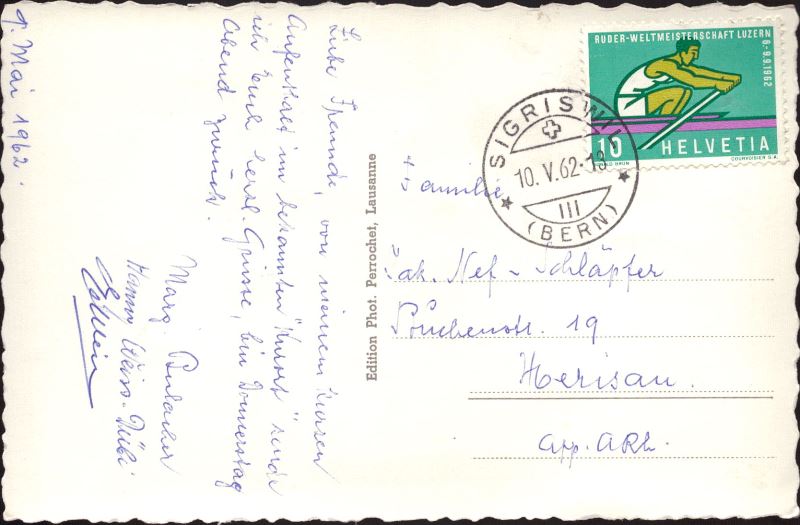 9. Mai 1962.
Liebe Freunde, von meinem kurzen
Aufenthalt im bekannten "Kurort" sende
ich Euch herzl. Grüsse, bin Donnerstag
Abend zurück.
Hanny Weiss-Dübi
Edition Phot. Perrochet, Lausanne
RUDER-WELTMEISTERSCHAFT LUZERN
6.-9.9.1962
10 HELVETIA
COURVOISIER S.A.
SIGRISWIL
10.V.62-18
III
(BERN)
Familie
Jak. Nef-Schläpfer
19
Herisau.
App. ARh.